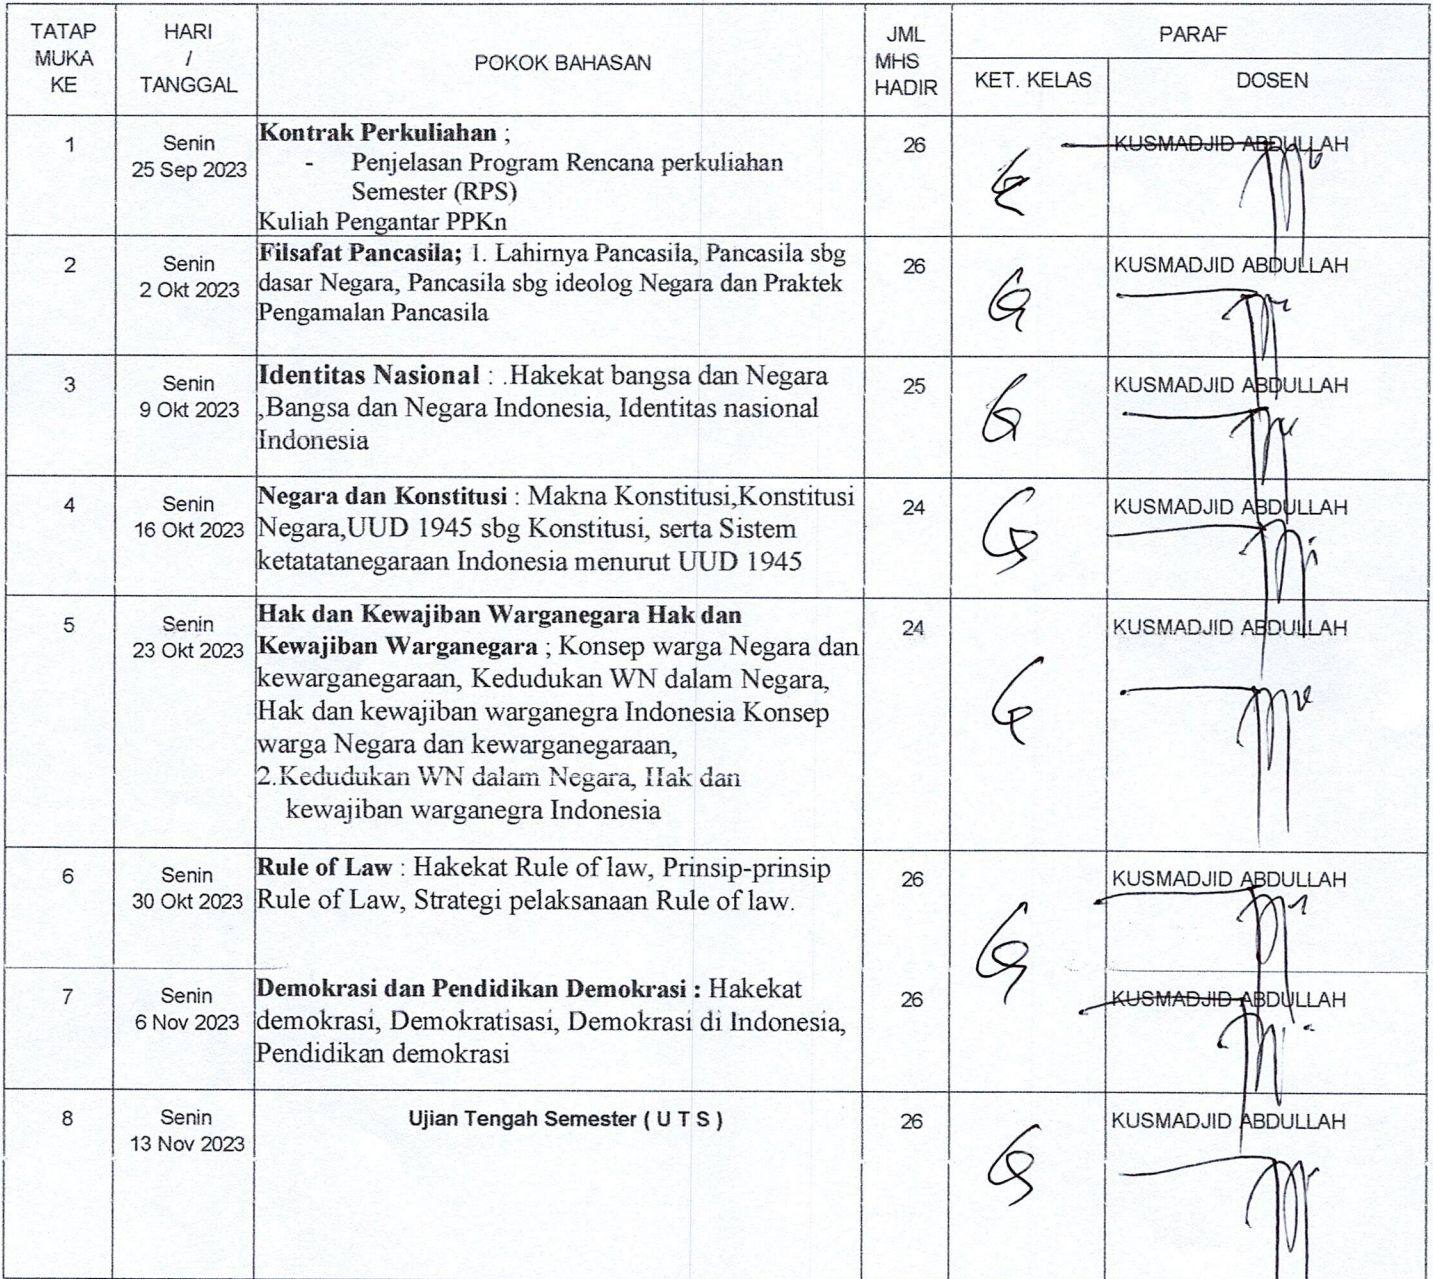 TATAP
MUKA
KE
HARI
/
TANGGAL
POKOK BAHASAN
JML
MHS
HADIR
PARAF
KET. KELAS
DOSEN
1
Senin
25 Sep 2023
Kontrak Perkuliahan ;
- Penjelasan Program Rencana perkuliahan
Semester (RPS)
Kuliah Pengantar PPKn
26
KUSMADJID ABDULLAH
2
Senin
2 Okt 2023
Filsafat Pancasila; 1. Lahirnya Pancasila, Pancasila sbg
dasar Negara, Pancasila sbg ideolog Negara dan Praktek
Pengamalan Pancasila
26
KUSMADJID ABDULLAH
3
Senin
9 Okt 2023
Identitas Nasional : .Hakekat bangsa dan Negara
,Bangsa dan Negara Indonesia, Identitas nasional
Indonesia
25
KUSMADJID ABDULLAH
4
Senin
16 Okt 2023
Negara dan Konstitusi : Makna Konstitusi,Konstitusi
Negara,UUD 1945 sbg Konstitusi, serta Sistem
ketatatanegaraan Indonesia menurut UUD 1945
24
KUSMADJID ABDULLAH
5
Senin
23 Okt 2023
Hak dan Kewajiban Warganegara Hak dan
Kewajiban Warganegara ; Konsep warga Negara dan
kewarganegaraan, Kedudukan WN dalam Negara,
Hak dan kewajiban warganegra Indonesia Konsep
warga Negara dan kewarganegaraan,
2.Kedudukan WN dalam Negara, Hak dan
kewajiban warganegra Indonesia
24
KUSMADJID ABDULLAH
6
Senin
30 Okt 2023
Rule of Law : Hakekat Rule of law, Prinsip-prinsip
Rule of Law, Strategi pelaksanaan Rule of law.
26
KUSMADJID ABDULLAH
7
Senin
6 Nov 2023
Demokrasi dan Pendidikan Demokrasi : Hakekat
demokrasi, Demokratisasi, Demokrasi di Indonesia,
Pendidikan demokrasi
26
KUSMADJID ABDULLAH
8
Senin
13 Nov 2023
Ujian Tengah Semester ( U T S )
26
KUSMADJID ABDULLAH